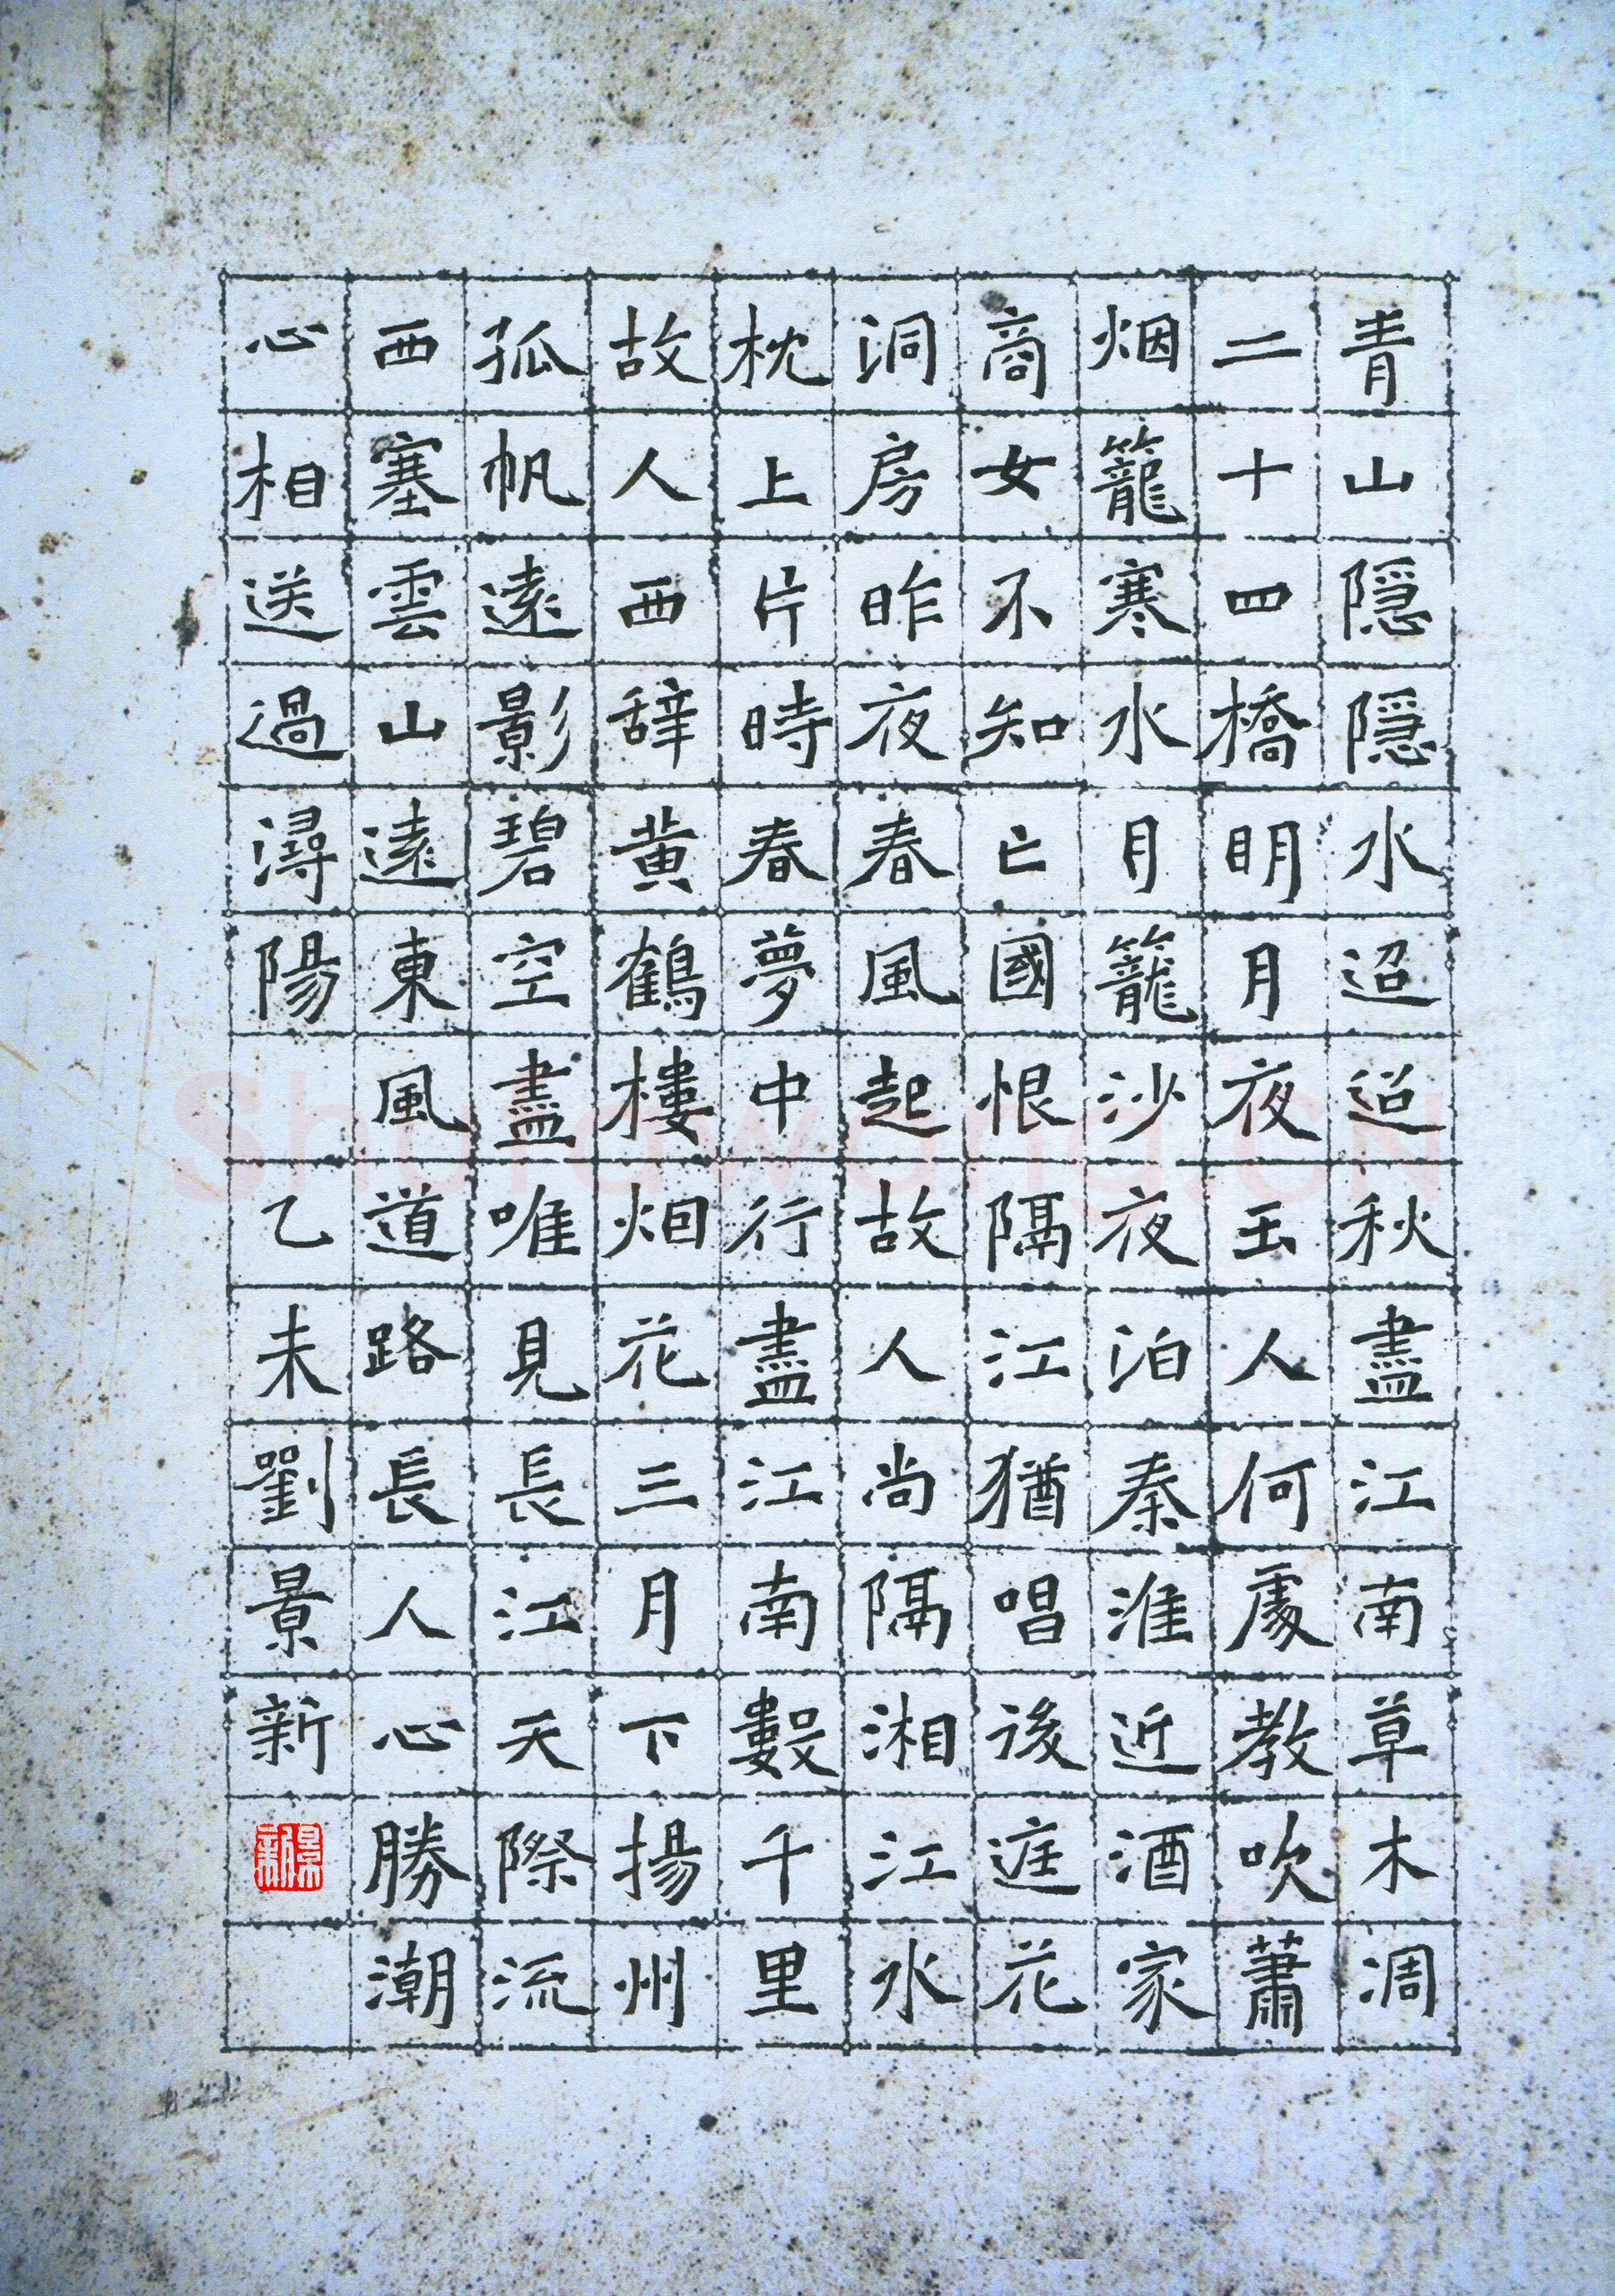 青山隱隱水迢迢秋盡江南草木凋
二十四橋明月夜玉人何處教吹蕭
烟籠寒水月籠沙夜泊秦淮近酒家
商女不知亡國恨隔江猶唱後庭花
洞房昨夜春風起故人尚隔湘江水
枕上片時春夢中行盡江南數千里
故人西辞黄鶴樓烟花三月下揚州
孤帆遠影碧空盡唯見長江天際流
西塞雲山遠東風道路長人心勝潮
心相送過潯陽 乙未劉景新
景新
Shufawang.CN